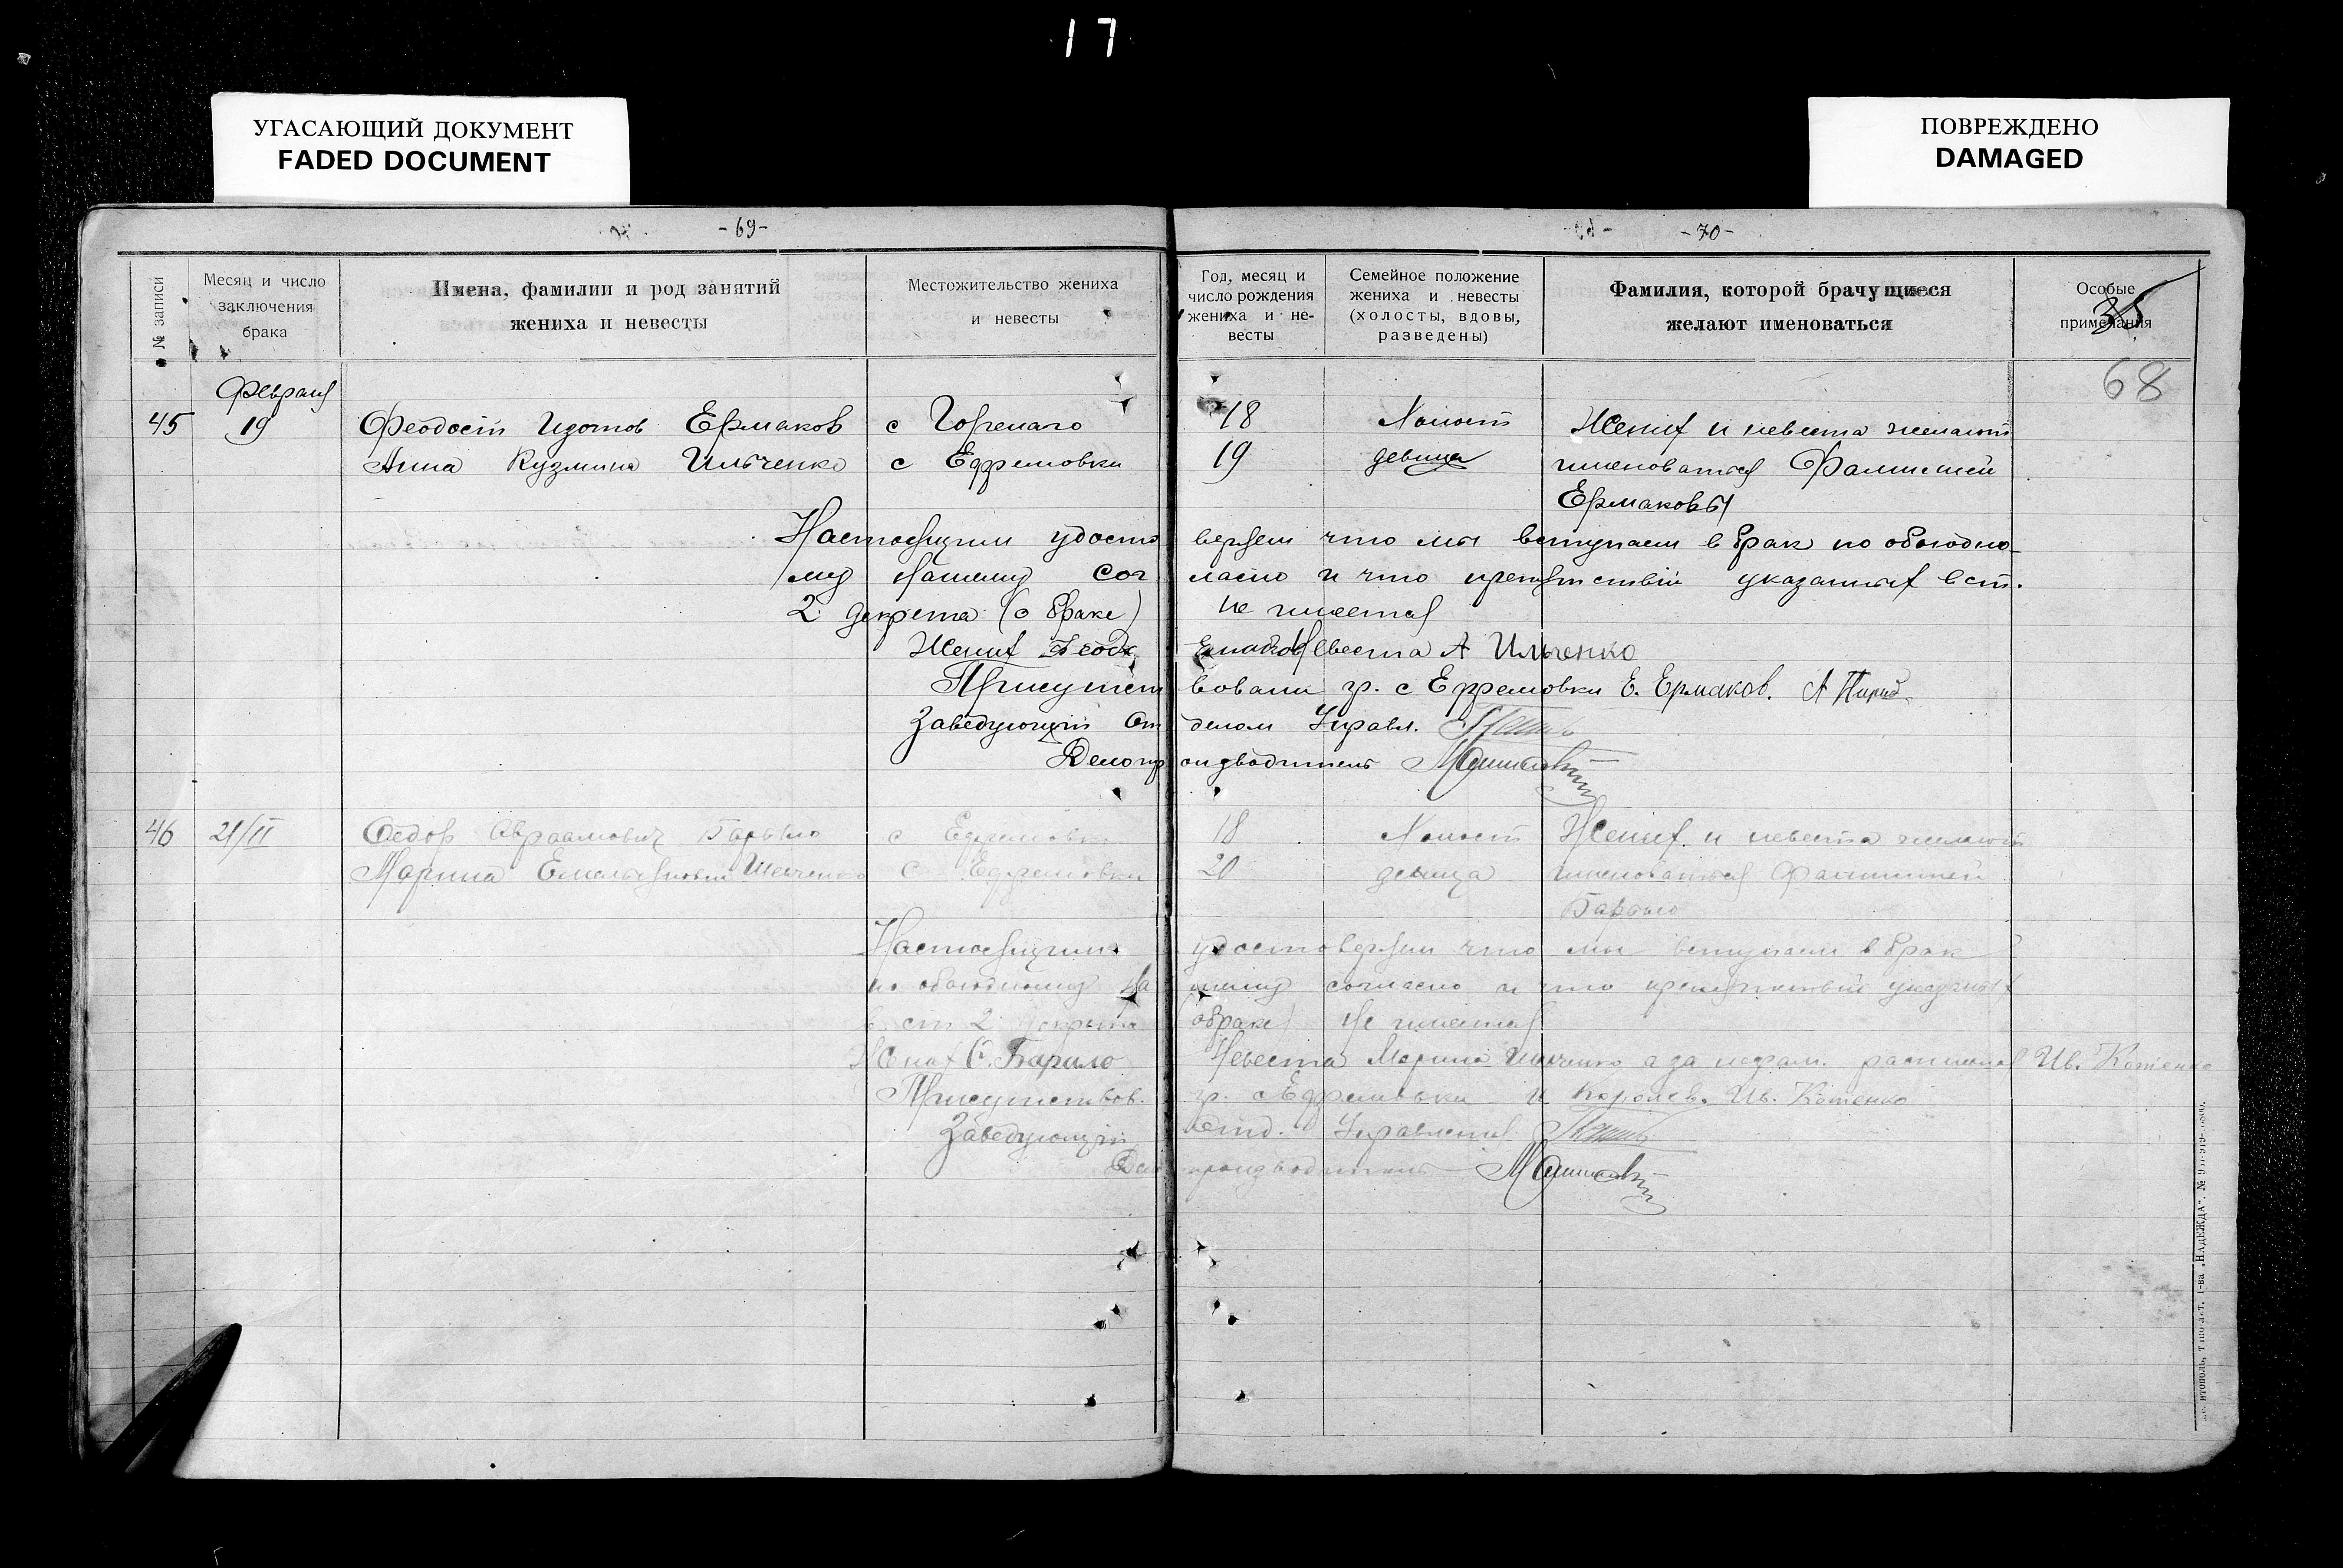 17
УГАСАЮЩИЙ ДОКУМЕНТ
FADED DOCUMENT
ПОВРЕЖДЕНО
DAMAGED
-69-
-70-
№ записи
Месяц и число
заключения
брака
Имена, фамилии и род занятий
жениха и невесты
Местожительство жениха
и невесты
Год, месяц и
число рождения
жениха и не-
весты
Семейное положение
жениха и невесты
(холосты, вдовы,
разведены)
Фамилия, которой брачущиеся
желают именоваться
Особые
примечания
35
68
Февраля
45 19 Феодосiй Изотов Ермаков с Горелаго 18 Холост Жених и невеста желают
Анна Кузмина Ильченко с Ефремовки 19 девица именоваться Фамилией
Ермаковы
Настоящим удостоверяем что мы вступаем в брак по обоюдно-
му нашему согласию и что препятствий указаных в ст.
2 декрета (о браке) не имеется
Жених Невеста А Ильченко
Присутствовали гр. с Ефремовки Е. Ермаков. А
Заведующiй Отделом Управл.
Делопроизводитель
46 21/II Федор Авраамович Барыло с Ефремовки 18 Холост Жених и невеста желают
Марина Емельяновна Ильченко с Ефремовки 20 девица именоваться Фамилией
Барыло
Настоящим удостоверяем что мы вступаем в брак
по обоюдному нашему согласию и что препятствий указаных
в ст 2 декрета (о браке) не имеется
Жених Ф. Барило Невеста Марина Ильченко а за неграм. расписался Ив. Котенко
Присутствов. гр. с Ефремовки и Королев. Ив. Котенко
Заведующiй Отд. Управления
Делопроизводитель
т-ва „НАДЕЖДА“.